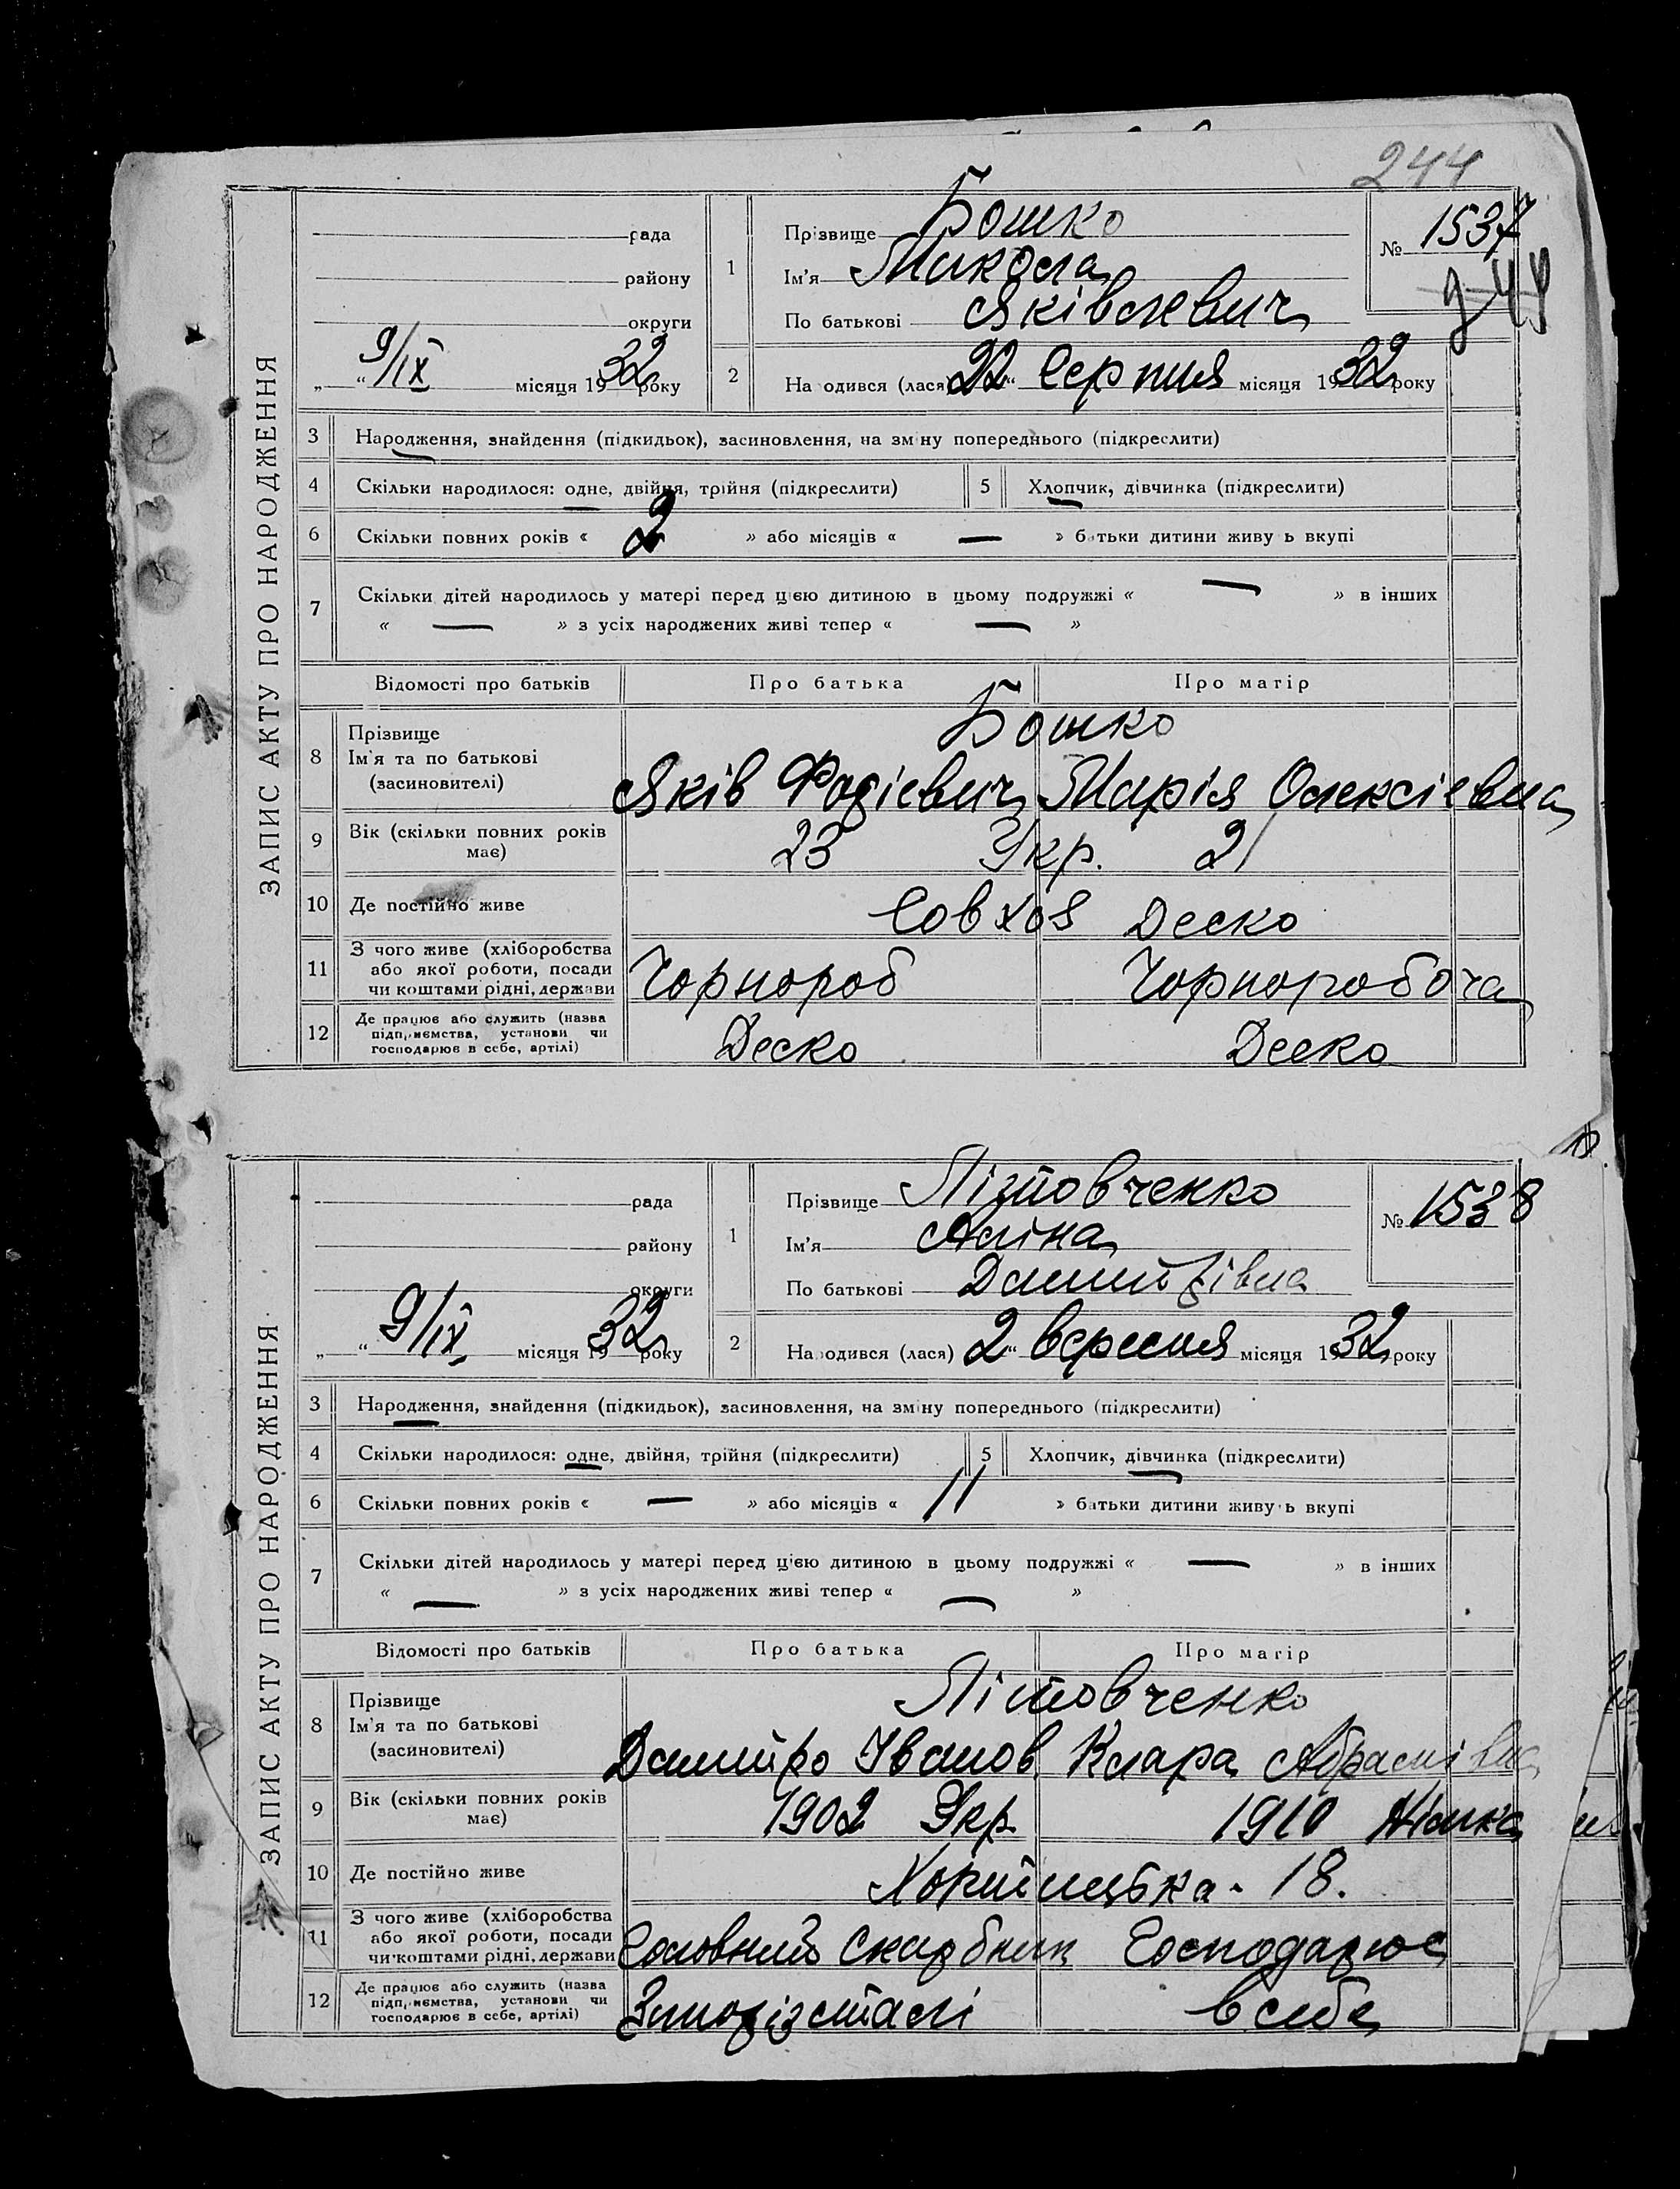 244
ЗАПИС АКТУ ПРО НАРОДЖЕННЯ
рада
району
округи
„ “ 9/IX місяця 1932 року
1
Прізвище Бошко
Ім'я Микола
По батькові Яківлевич
№ 1537
2
На одився (лася) 22 “ Серпня місяця 1932 року
3 Народження, знайдення (підкидьок), засиновлення, на зміну попереднього (підкреслити)
4 Скільки народилося: одне, двійня, трійня (підкреслити) 5 Хлопчик, дівчинка (підкреслити)
6 Скільки повних років « 2 » або місяців « — » батьки дитини живу ь вкупі
7 Скільки дітей народилось у матері перед цією дитиною в цьому подружжі « — » в інших
« — » з усіх народжених живі тепер « — »
Відомості про батьків Про батька Про матір
8 Прізвище
Ім'я та по батькові
(засиновителі)
Бошко
Яків Фадієвич Марія Олексієвна
9 Вік (скільки повних років має) 23 Укр. 21
10 Де постійно живе Совхоз Деско
11 З чого живе (хліборобства
або якої роботи, посади
чи коштами рідні, держави
Чорнороб Чорноробоча
12 Де працює або служить (назва
підприємства, установи чи
господарює в себе, артілі)
Деско Деско
ЗАПИС АКТУ ПРО НАРОДЖЕННЯ
рада
району
округи
„ “ 9/IX місяця 1932 року
1
Прізвище
Ім'я Аліна
По батькові Дмитрівна
№ 1538
2
Народився (лася) 2 “ вересня місяця 1932 року
3 Народження, знайдення (підкидьок), засиновлення, на зміну попереднього (підкреслити)
4 Скільки народилося: одне, двійня, трійня (підкреслити) 5 Хлопчик, дівчинка (підкреслити)
6 Скільки повних років « — » або місяців « 11 » батьки дитини живу ь вкупі
7 Скільки дітей народилось у матері перед цією дитиною в цьому подружжі « — » в інших
« — » з усіх народжених живі тепер « — »
Відомості про батьків Про батька Про матір
8 Прізвище
Ім'я та по батькові
(засиновителі)
Літовченко
Дмитро Іванов. Клара Абрамівна
9 Вік (скільки повних років має) 1902 Укр 1910 Німка
10 Де постійно живе Хортицька - 18.
11 З чого живе (хліборобства
або якої роботи, посади
чи коштами рідні, держави
Головний Скарбник Господарює
12 Де працює або служить (назва
підприємства, установи чи
господарює в себе, артілі)
Запорізсталі в себе